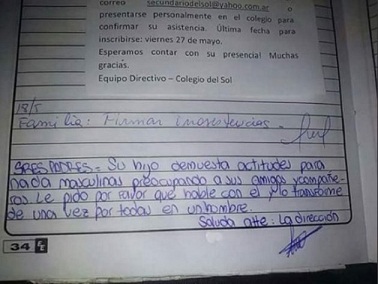 correo secundariodelsol@yahoo.com.ar o
presentarse personalmente en el colegio para
confirmar su asistencia. Última fecha para
inscribirse: viernes 27 de mayo.
Esperamos contar con su presencia! Muchas
gracias.
Equipo Directivo – Colegio del Sol
18/5
Familia: Firmar inasistencias.
SRES PADRES: Su hijo demuesta actitudes para
nada masculinas preocupando a sus amigos y compañe-
ros. Le pido por favor que hable con el y lo transforme
de una vez por todas en un hombre.
Saluda atte: La dirección
34